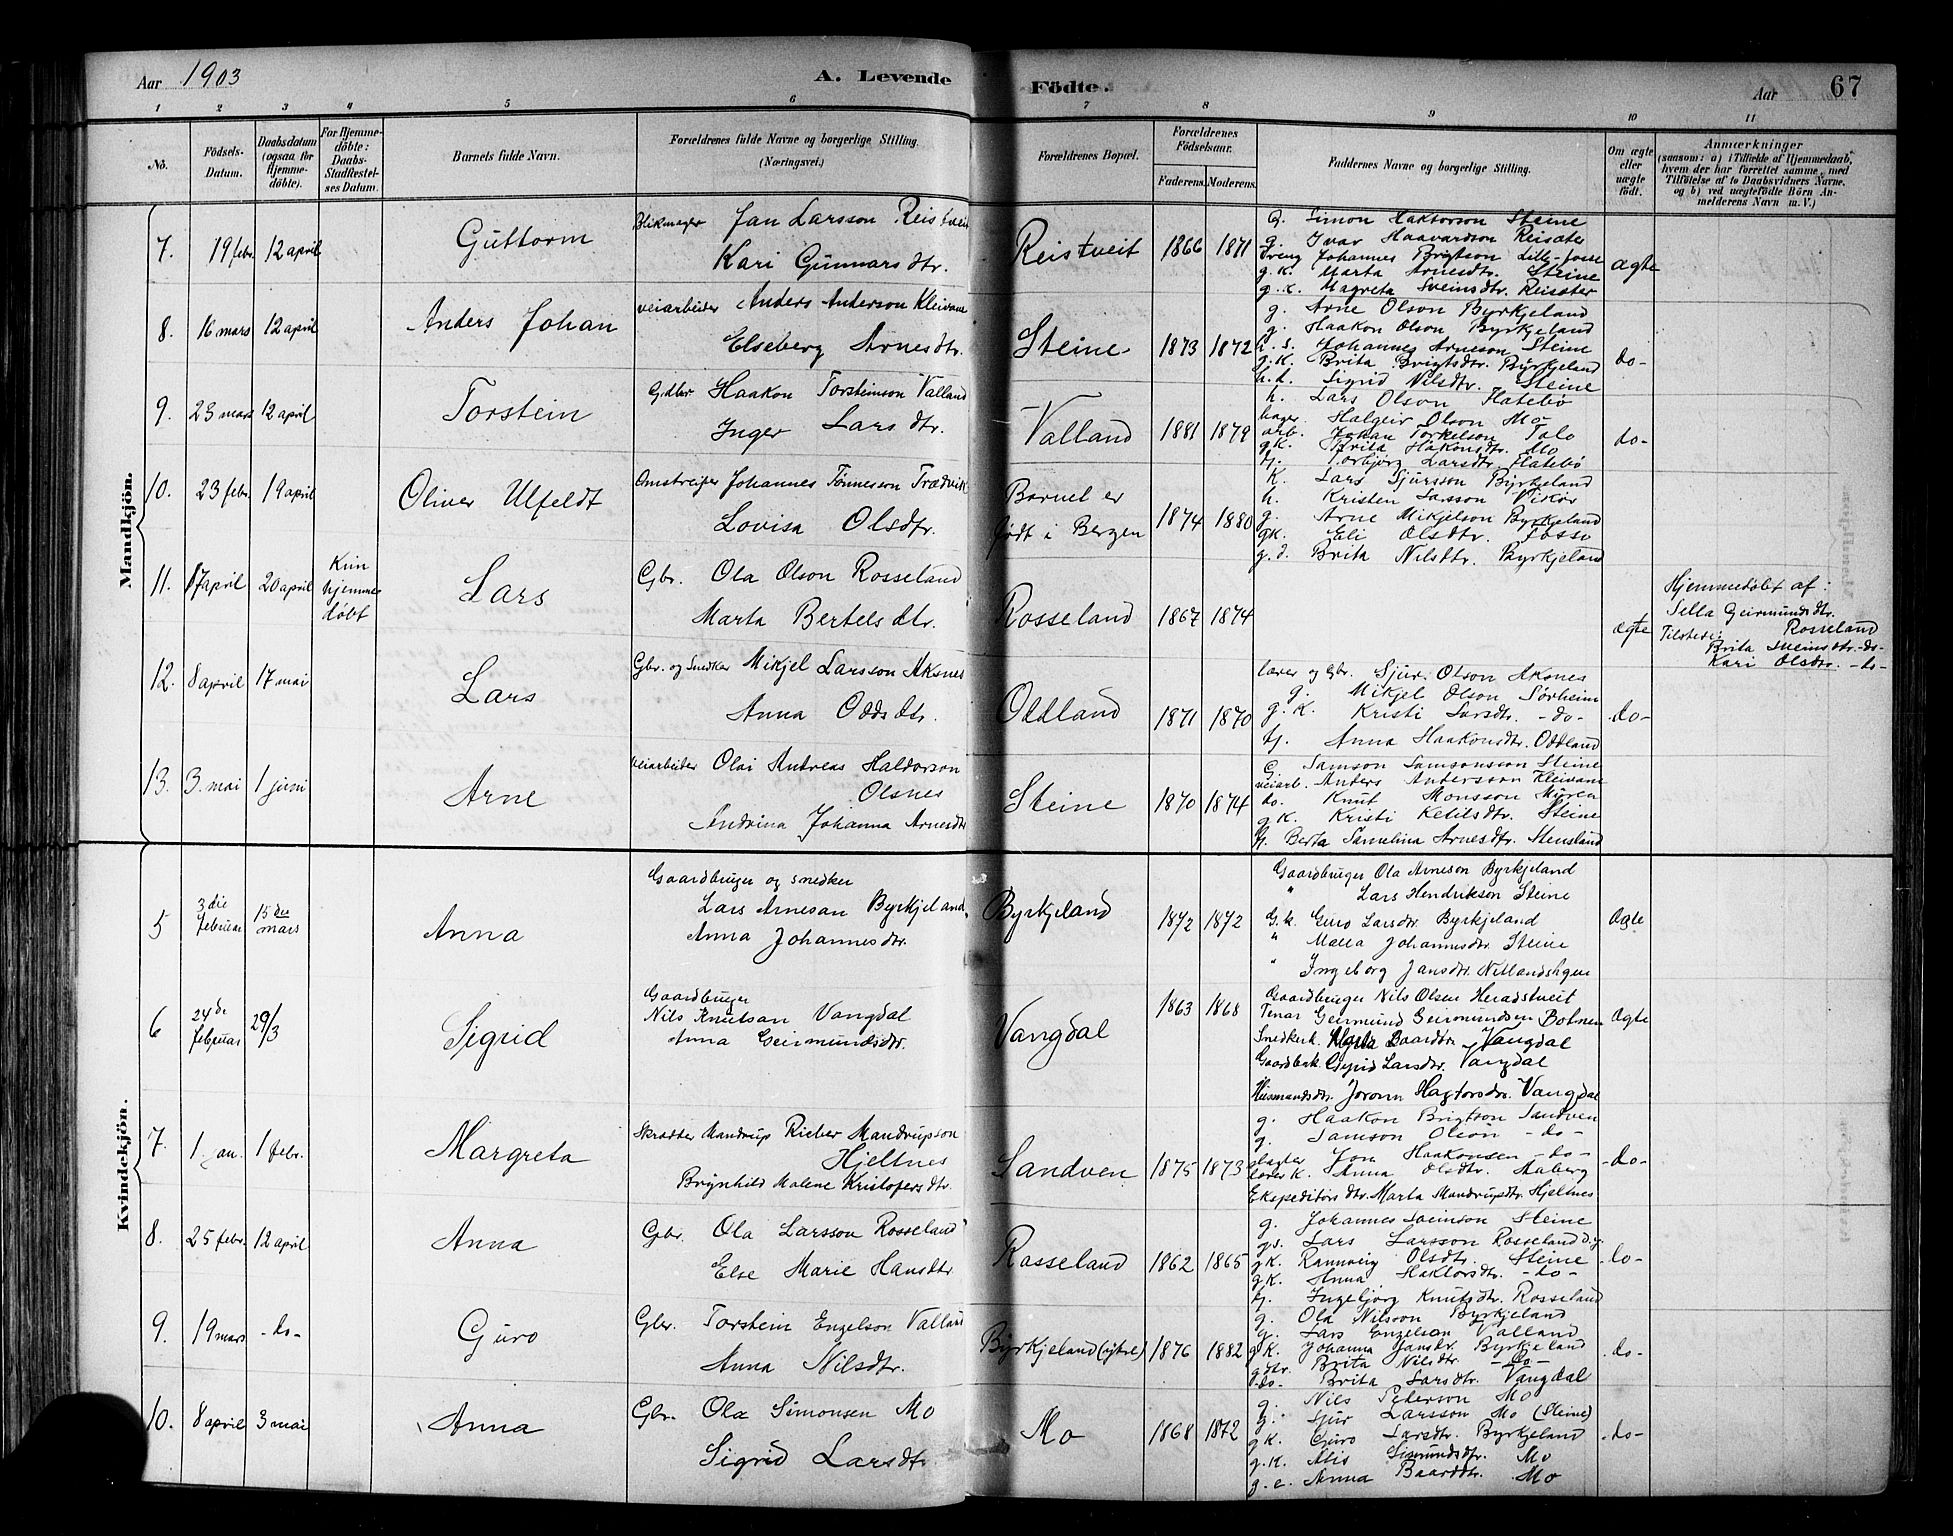 Aar 1903
A. Levende Födte.
Aar 67
1 2 3 4 5 6 7 8 9 10 11
No.
Födsels-Datum.
Daabsdatum (ogsaa for Hjemme-döbte).
For Hjemme-döbte: Daabs-Stadfæstel-ses Datum.
Barnets fulde Navn.
Forældrenes fulde Navne og borgerlige Stilling. (Næringsvei.)
Forældrenes Bopæl.
Forældrenes Födselsaar.
Faderens. Moderens.
Faddernes Navne og borgerlige Stilling.
Om ægte eller uægte födt.
Anmærkninger
(saasom: a) i Tilfælde af Hjemmedaab, hvem der har forrettet samme, med Tilföielse af to Daabsvidners Navne, og b) ved uægtefödte Börn An-melderens Navn m. V.)
Mandkjön.
7. 19 febr. 12 april Guttorm
Jan Larsson Reistveit
Kari Gunnarsdtr.
Reistveit 1866 1871
G. Simon Haktorson Steine
g. Ivar Haavardson Reisæter
Dreng Johannes Brigtson Lille-fosse
g.k. Marta Arnesdtr. Steine
g.k. Magreta Sveinsdtr. Reisæter
ægte
8. 16 mars 12 april Anders Johan
veiarbeider Anders Anderson Kleivane
Elseberg Arnesdtr.
Steine 1873 1872
g. Arne Olson Byrkjeland
g. Haakon Olson Byrkjeland
Johannes Arneson Steine
g.k. Brita Brigtsdtr. Byrkjeland
Sigrid Nilsdtr. Steine
do-
9. 23 mars 12 april Torstein
Gdbr Haakon Torsteinson Valland
Inger Larsdtr.
Valland 1881 1879
h. Lars Olson Flatebø
bager Halgeir Olson Mo
arb. Johan Torkelson Tolo
gk. Brita Hakonsdtr. Mo
tj. Torbjørg Larsdtr. Flatebø
do-
10. 23 febr. 19 april Oliver Ulfeldt
Omstreifer Johannes Tønneson Trædvik
Lovisa Olsdtr.
Barnet er
født i Bergen 1874 1880
K. Lars Sjursson Byrkjeland
h. Kristen Larsson Vikør
g. Arne Mikjelson Byrkjeland
gk. Eli Olsdtr. Fosse
g.d. Brita Nilsdtr. Byrkjeland
11. 17 april 20 april Kun hjemme døbt Lars
Gbr. Ola Olson Rosseland
Marta Bertelsdtr.
Rosseland 1867 1874 ægte
Hjemmedøbt af:
Sella Geirmundsdtr.
Rosseland
Tilstede:
Brita Sveinsdtr. -do-
Kari Olsdtr. -do-
12. 8 april 17 mai Lars
Gbr. og Snedker Mikjel Larsson Aksnes
Anna Oddsdtr.
Oddland 1871 1870
lærer og Gbr. Sjur Olson Aksnes
g. Mikjel Olson Sørheim
g.k. Kristi Larsdtr. -do-
tj. Anna Haakonsdtr. Oddland
do-
13. 3 mai 1 juni Arne
veiarbeider Olai Andreas Haldorson
Olsnes
Sendrina Johanna Arnesdtr
Steine 1870 1874
G. Samson Samsonsson Steine
veiarb. Anders Andersson Kleivane
do. Knut Monsson Muren
g.k. Kristi Ketilsdtr. Steine
tj. Berta Samelina Arnesdtr. Stensland
Kvindekjön.
5 3die Februar 15de mars Anna
Gaardbruger og snedker
Lars Arneson Byrkjeland,
Anna Johannesdtr.
Byrkjeland 1872 1872
Gaardbruger Ola Arneson Byrkjeland
" Lars Hendrikson Steine
G.k. Guro Larsdtr Byrkjeland
" Malla Johannesdtr Steine
" Ingeborg Jansdtr. Netlandshgen
Ægte
6 24de Februar 29/3 Sigrid
Gaardbruger
Nils Knutsan Vangdal
Anna Geirmundsdtr.
Vangdal 1863 1868
Gaardbruger Nils Olsen Heradstveit
Tenar Geirmund Geirmundsen Botnen
Snedkerk. Marta Baardtr. Vangdal
Gaardbrk. Sigrid Larsdtr. Vangdal
Husmandsdtr. Joronn Hagtorsdtr. Vangdal
Ægte
7. 1. jan. 1 febr. Margreta
Skrædder Mandrup Rieber Mandrupson
Hjeltnes
Brynhild Malene Kristofersdtr.
Sandven 1875 1873
g. Haakon Brigtson Sandven
g. Samson Olson -do-
slagter Jon Haakonsen -do-
lærer k. Anna Olsdtr. Aaberg
Ekspeditørs dtr. Marta Mandrupsdtr. Hjeltnes
-do-
8. 25 febr. 12 april Anna
Gbr. Ola Larsson Rosseland
Else Marie Hansdtr.
Rosseland 1862 1865
g. Johannes Sveinson Steine
gs. Lars Larsson Rosseland
g.k. Rannveig Olsdtr. Steine
g.k. Anna Haktorsdtr. -do-
tj. Ingebjorg Knutsdtr. Rosseland
do-
9. 19 mars -do- Guro
Gbr. Torstein Engelson Valland
Anna Nilsdtr.
Byrkjeland (ytre) 1876 1882
g. Ola Nilsson Byrkjeland
g. Lars Engelson Valland
g.k. Johanna Jansdtr. Byrkjeland
g.dtr. Brita Nilsdtr. -do-
-do- Brita Larsdtr. Vangdal
do-
10. 8 april 3 mai Anna
Gbr. Ola Simonsen Mo
Sigrid Larsdtr
Mo 1868 1872
g. Nils Pederson Mo
g. Sjur Larsson Mo (Steine)
g.k. Guro Larsdtr. Byrkjeland
g.k. Alis Sigmundsdtr. Mo
g.e. Anna Baardtr. Mo
do-